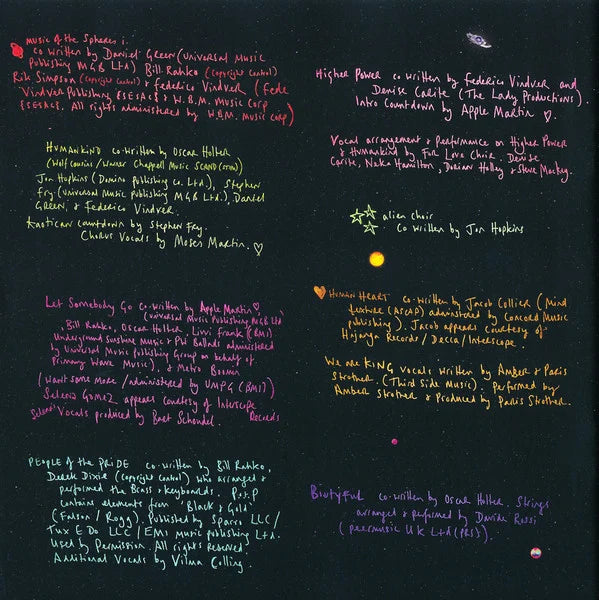 MUSIC of the Spheres i.
co written by Daniel Green (universal music
Publishing MGB Ltd) Bill Rahko (copyright control)
Rik Simpson (copyright control) & federico Vindver (Fede
Vindver Publishing {SESAC} & W.B.M. Music Corp
{SESAC}. All rights administered by W.B.M. music corp)
HUMANKIND co-written by Oscar Holter
(Wolf cousins / Warner Chappell Music SCAND (STIM)
Jon Hopkins (Domino publishing co. Ltd.), Stephen
fry. (universal music publishing MGB Ltd.), Daniel
GREEN, & Federico Vindver.
Kaotican countdown by Stephen Fry.
Chorus Vocals by Moses Martin. ♡
Let Somebody Go co-written by Apple Martin ♡
(universal Music Publishing MGB Ltd
, Bill Rahko, Oscar Holter, Livvi Franc (BMI)
Underground sunshine music + PW Ballads administered
by Universal Music publishing Group on behalf of
Primary Wave Music), & Metro Boomin
(want some more / administered by UMPG (BMI))
Selena Gomez appears courtesy of Interscope
Records
Selena's Vocals produced by Bart Schoudel.
PEOPLE of the PRIDE co-written by Bill Rahko,
Derek Dixie (copyright control) who arranged &
performed the Brass & keyboards. P.o.t.P
contains elements from 'Black & Gold'
(Falson / Rogg). Published by Sparro LLC /
Tux E Do LLC / EMI music publishing Ltd.
Used by Permission. All rights reserved
Additional Vocals by Vilma Colling.
Higher Power co written by federico Vindver and
Denise Carite (The Lady Productions).
Intro Countdown by Apple Martin ♡.
Vocal arrangement & Performance on Higher Power
& Humankind by For Love Choir. Denise
Carite, Neka Hamilton, Dorian Holley & Steve Mackey.
☆☆☆ alien choir
co written by Jon Hopkins
HUMAN HEART co-written by Jacob Collier (Mind
texture (ASCAP) administered by Concord Music
publishing). Jacob appears courtesy of
Hajanga Records / Decca / Interscope.
We are KING vocals written by Amber & Paris
Strother. (Third Side Music). performed by
Amber Strother & Produced by Paris Strother.
Biutyful co-written by Oscar Holter. Strings
arranged & performed by Davide Rossi
(peermusic UK Ltd (PRS)).